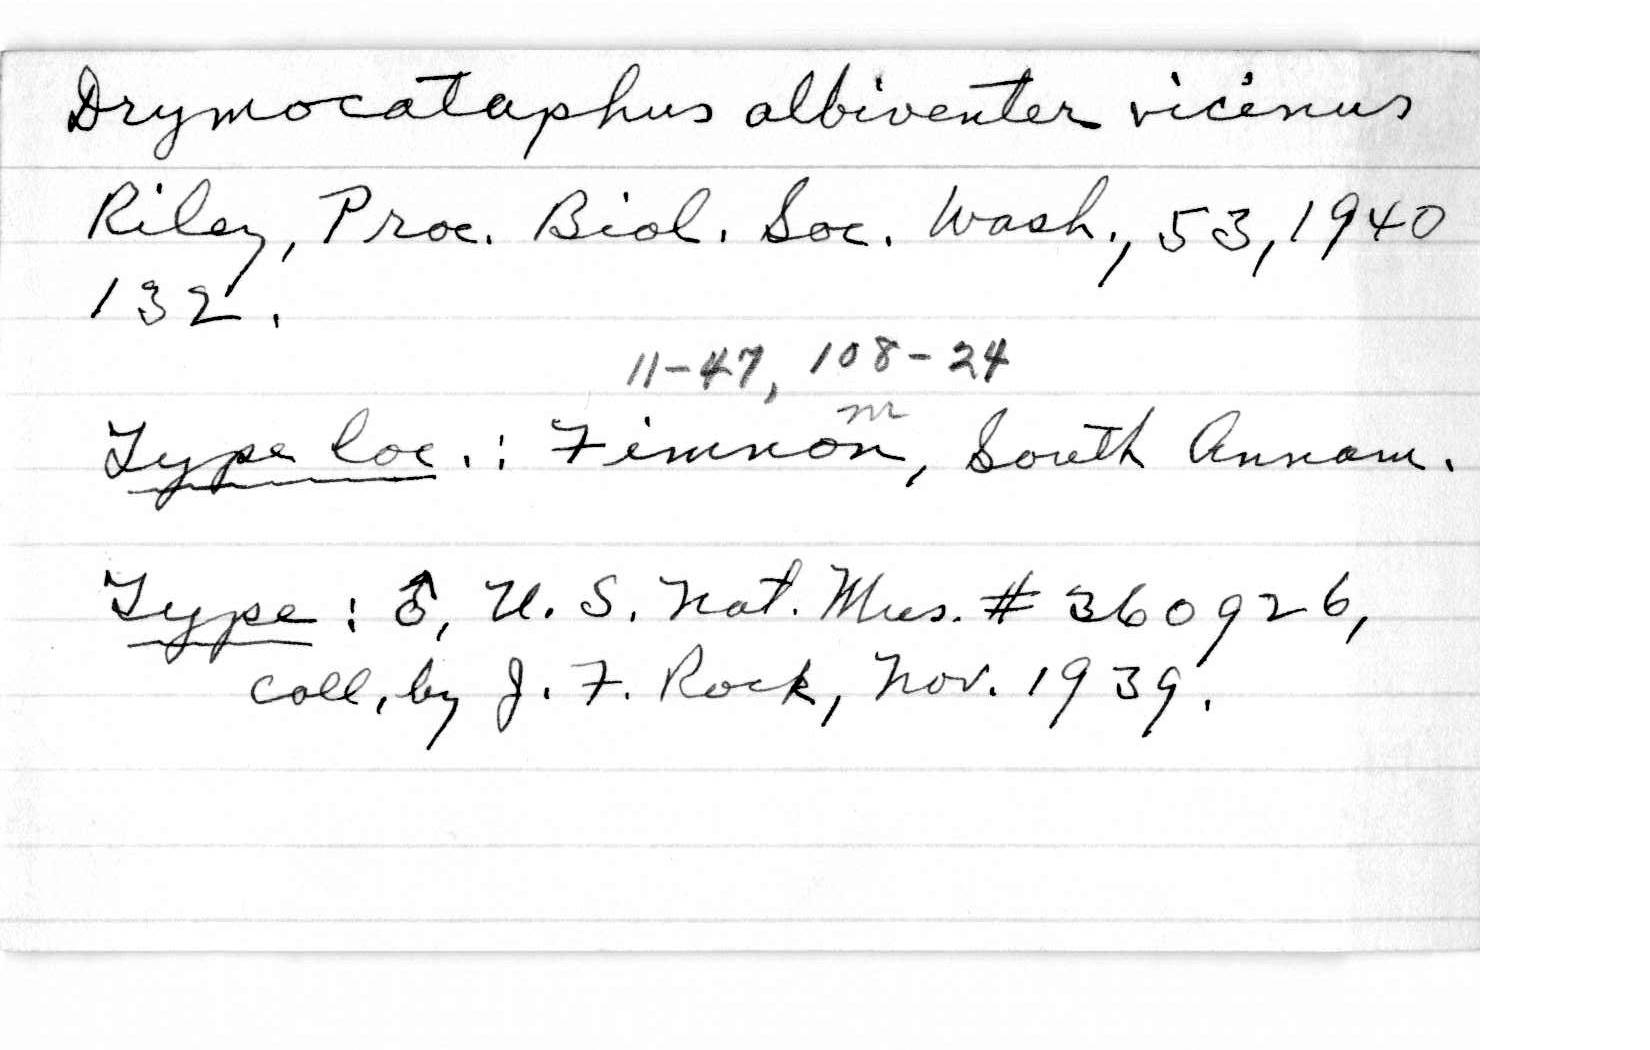 Drymocataphus albiventer vicinus
Riley, Proc. Biol. Soc. Wash., 53, 1940
132.
11-47, 108-24
m
Type loc.: Fimnon, South Annam.
Type: ♂, U. S. Nat. Mus. # 360926,
coll, by J. F. Rock, Nov. 1939.